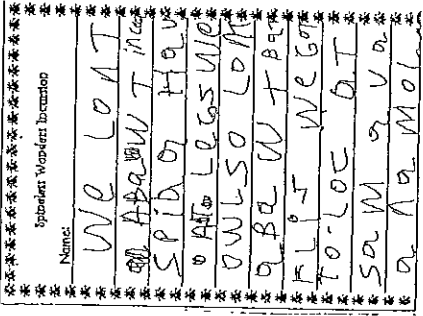 Spineless Wonders Incursion
Name:
We LonT
ABaWT inc
SPiDr Hav
LeGS We
OWLSO LOM
a BaWT Bat
FLis We Got
To Loc aT
SaM a va
a na Mol